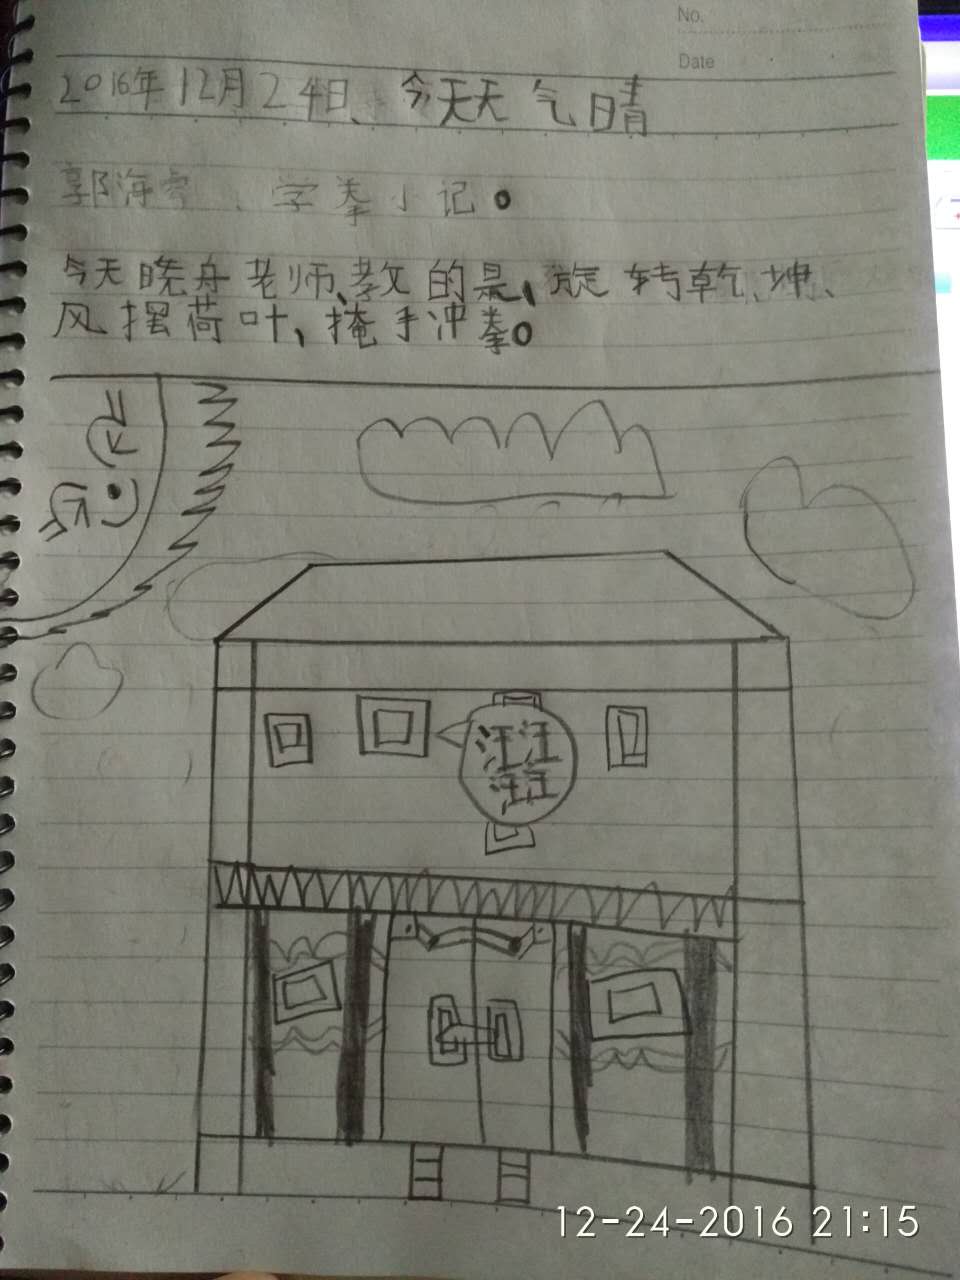 No.
Date
2016年12月24日、今天天气晴
郭海睿、学拳小记。
今天晓舟老师、教的是、旋转乾、坤、
风摆荷叶、掩手冲拳。
汪汪
汪汪
12-24-2016 21:15